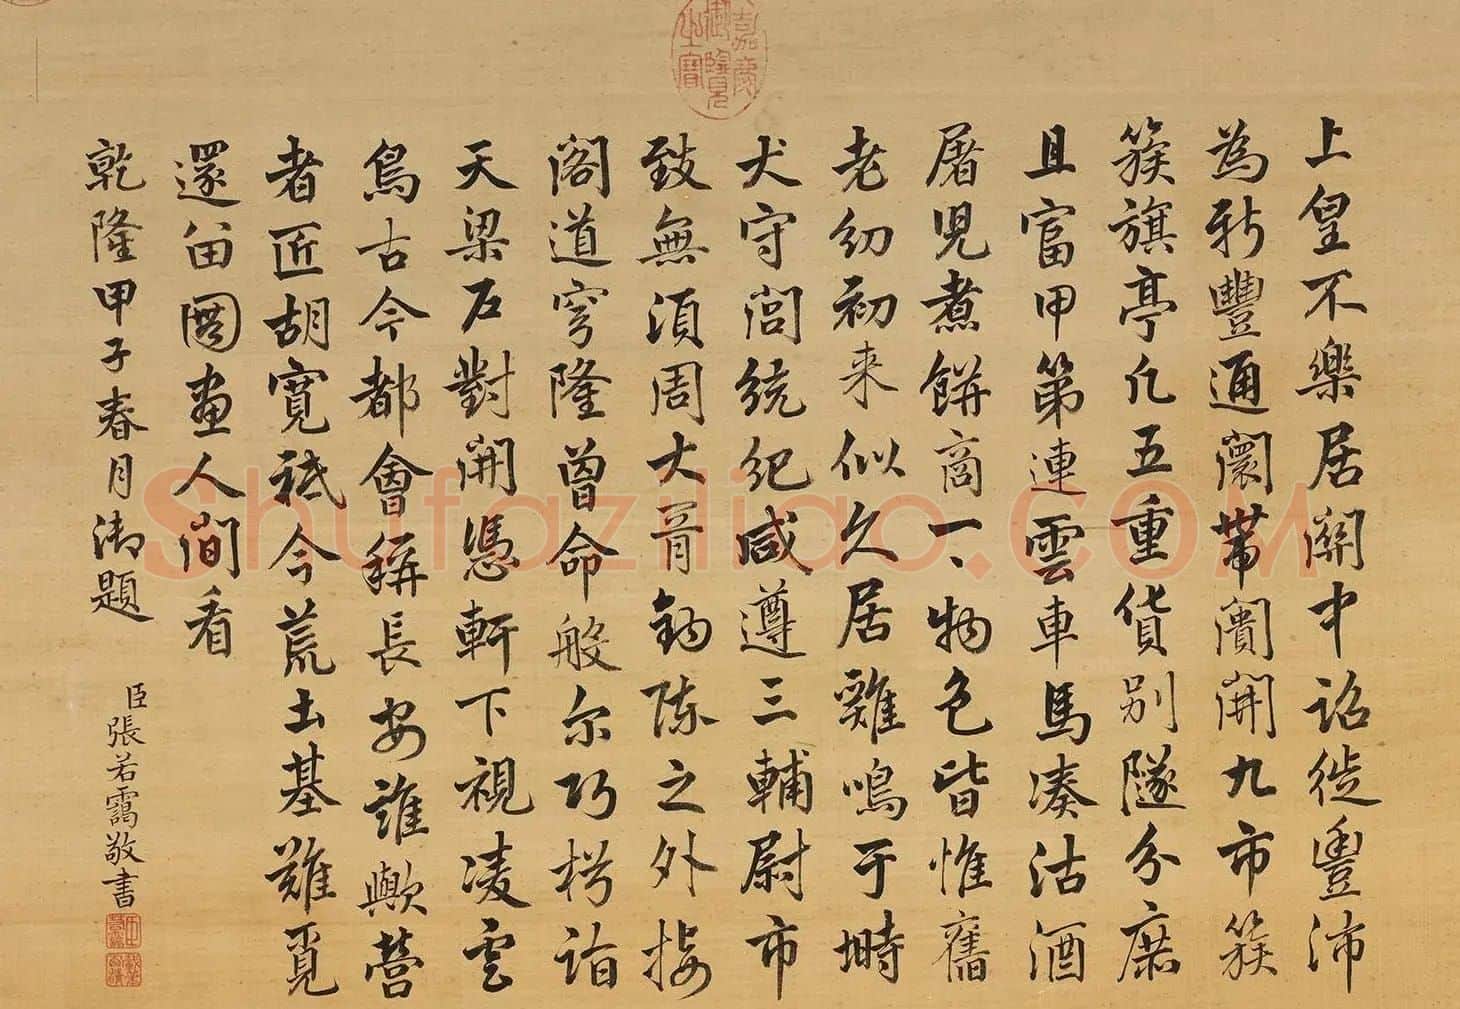 嘉慶御覽之寶
上皇不樂居關中詔徙豊沛
為新豐通闤帶闠開九市簇
簇旗亭凡五重貨別隧分庶
且富甲第連雲車馬湊沽酒
屠兒煮餅商一、物色皆惟舊
老幼初来似久居雞鳴于塒
犬守閭統紀咸遵三輔尉市
致無須周大胥鉤陳之外接
阁道穹隆曾命般尔巧枍詣
天梁反對開憑軒下視凌雲
鳥古今都會稱長安誰歟營
者匠胡寬祗今荒土基難覓
還畄圖畫人間看
乾隆甲子春月御題
臣張若靄敬書
Shufaziliao.COM